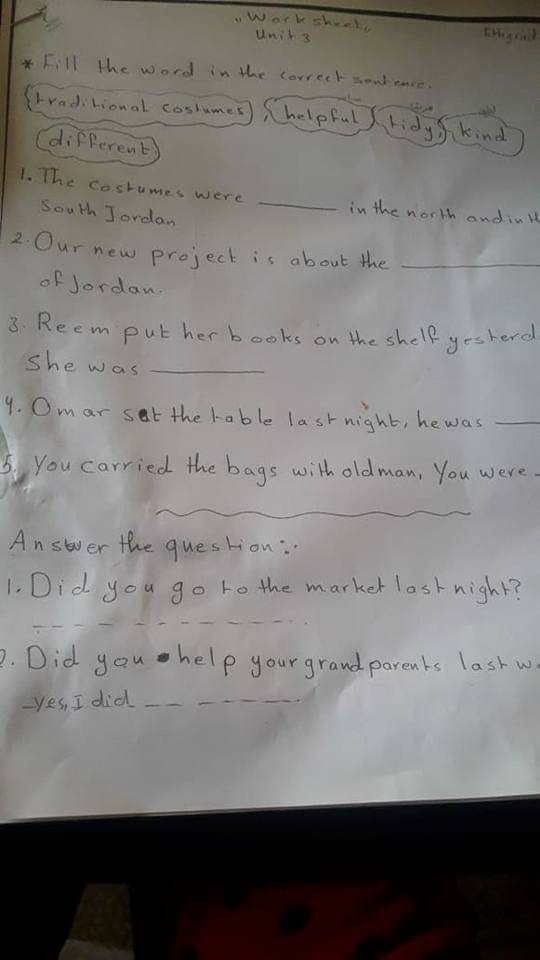 ,, Work sheet,,
Unit 3
* Fill the word in the correct sentence.
(traditional costumes), (helpful) (tidy), (kind)
(different)
1. The costumes were ______ in the north and in th
South Jordan
2. Our new project is about the ______
of Jordan.
3. Reem put her books on the shelf yesterd
She was ______
4. Omar set the table last night, he was ______
5. You carried the bags with old man, You were -
Answer the question:.
1. Did you go to the market last night?
- - - - - - - - - - - -
2. Did you help your grandparents last w
_yes, I did _ _ - - - - -.